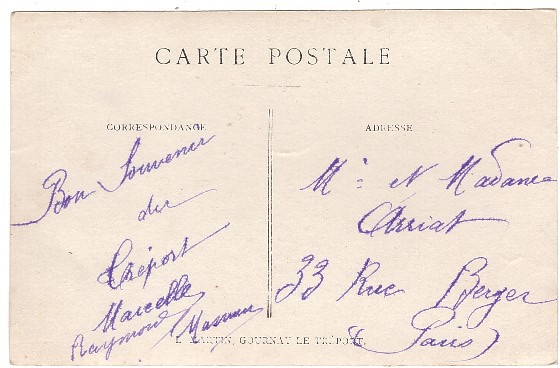 CARTE POSTALE
CORRESPONDANCE
Bon Souvenir
du
Tréport
Marcelle
Raymond
ADRESSE
Mr et Madame
33 Rue Berger
Paris
L. MARTIN, GOURNAY LE TRÉPORT.